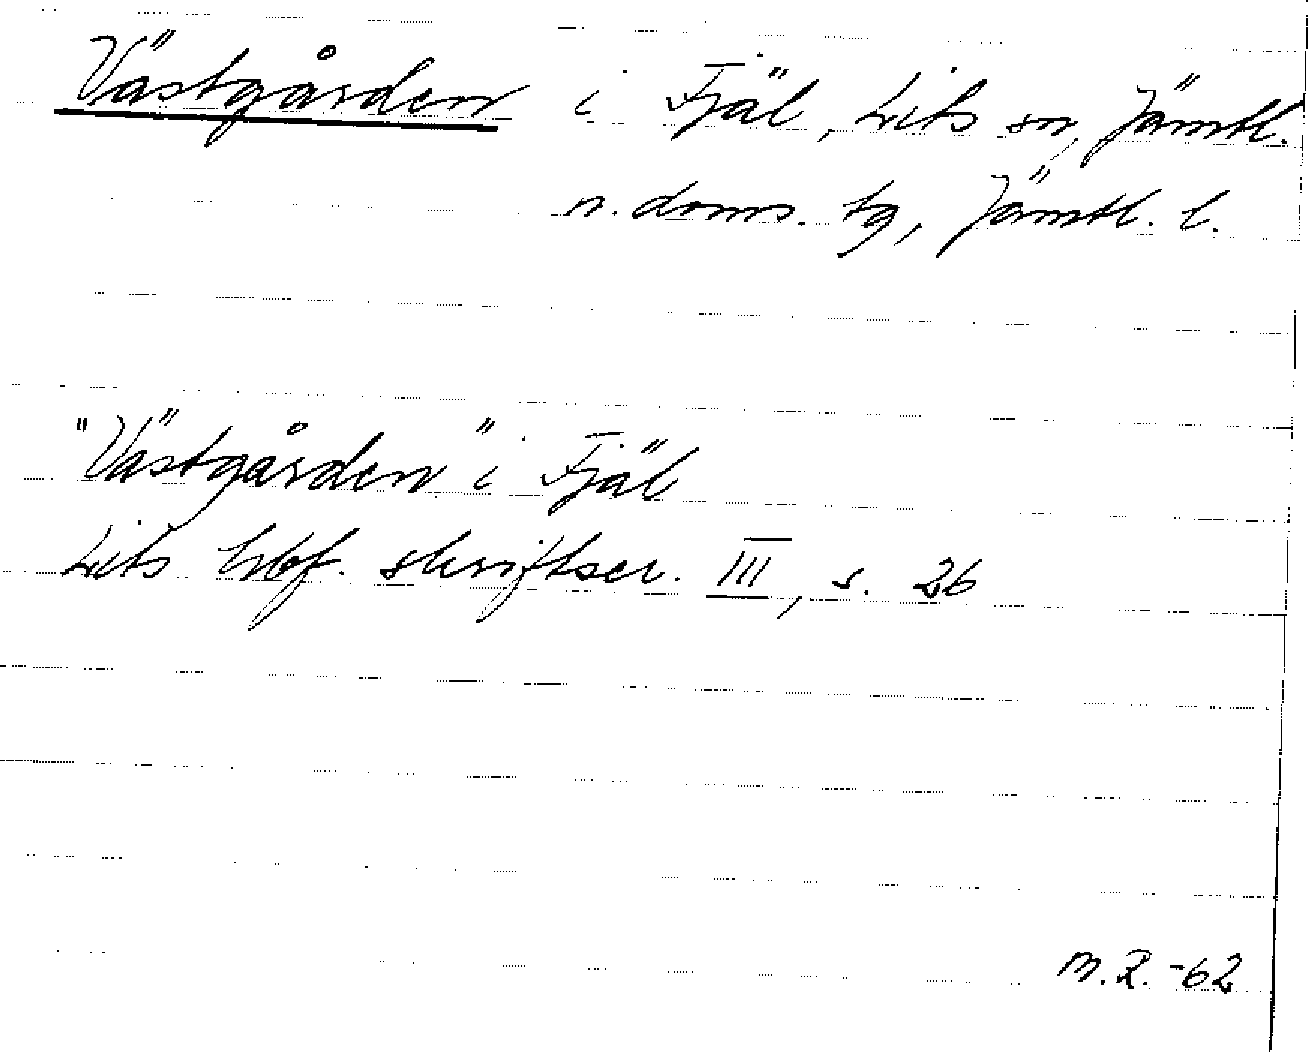 Västgården i Fjäl, Lits sn, Jämtl.
n. doms. tg, Jämtl. l.
"Västgården" i Fjäl
Lits hbf. skriftser. III, s. 26
M.R. -62